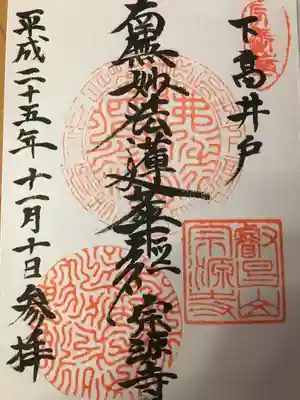 下高井戸
南無妙法蓮華経
宗源寺
叡昌山
宗源寺
平成二十五年十一月十日参拝